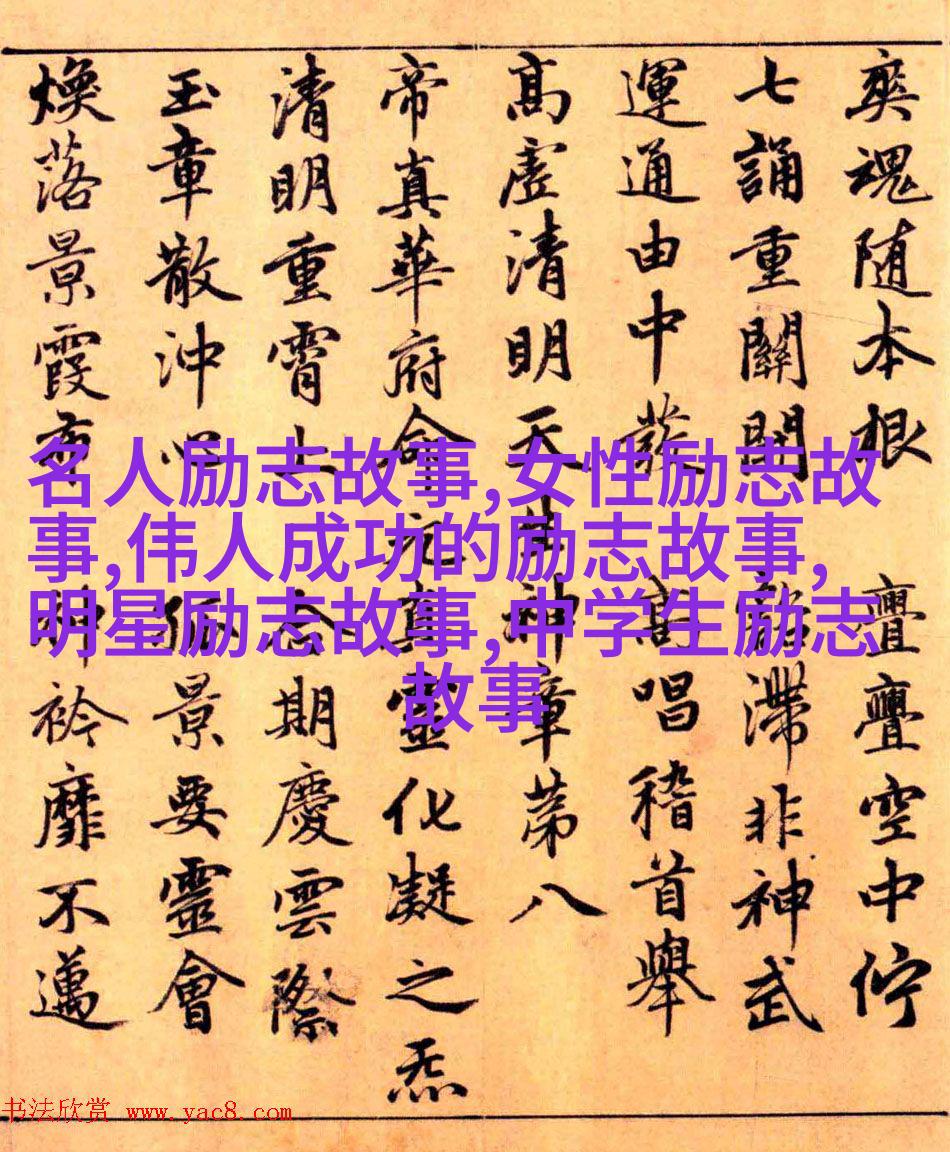 奕魂随本根 亹亹空中佇
七誦重關開 滯非神武
運通由中發 高唱稽首舉
高虛清明天 神章第八
帝真華府命元真靈化凝之炁
清明重霄上 合期慶雲際
玉章散沖心 孤景要靈會
煥落景霞布 神衿靡不邁
名人励志故事,女性励志故
事,伟人成功的励志故事,
明星励志故事,中学生励志
故事
书法欣赏 www.yac8.com